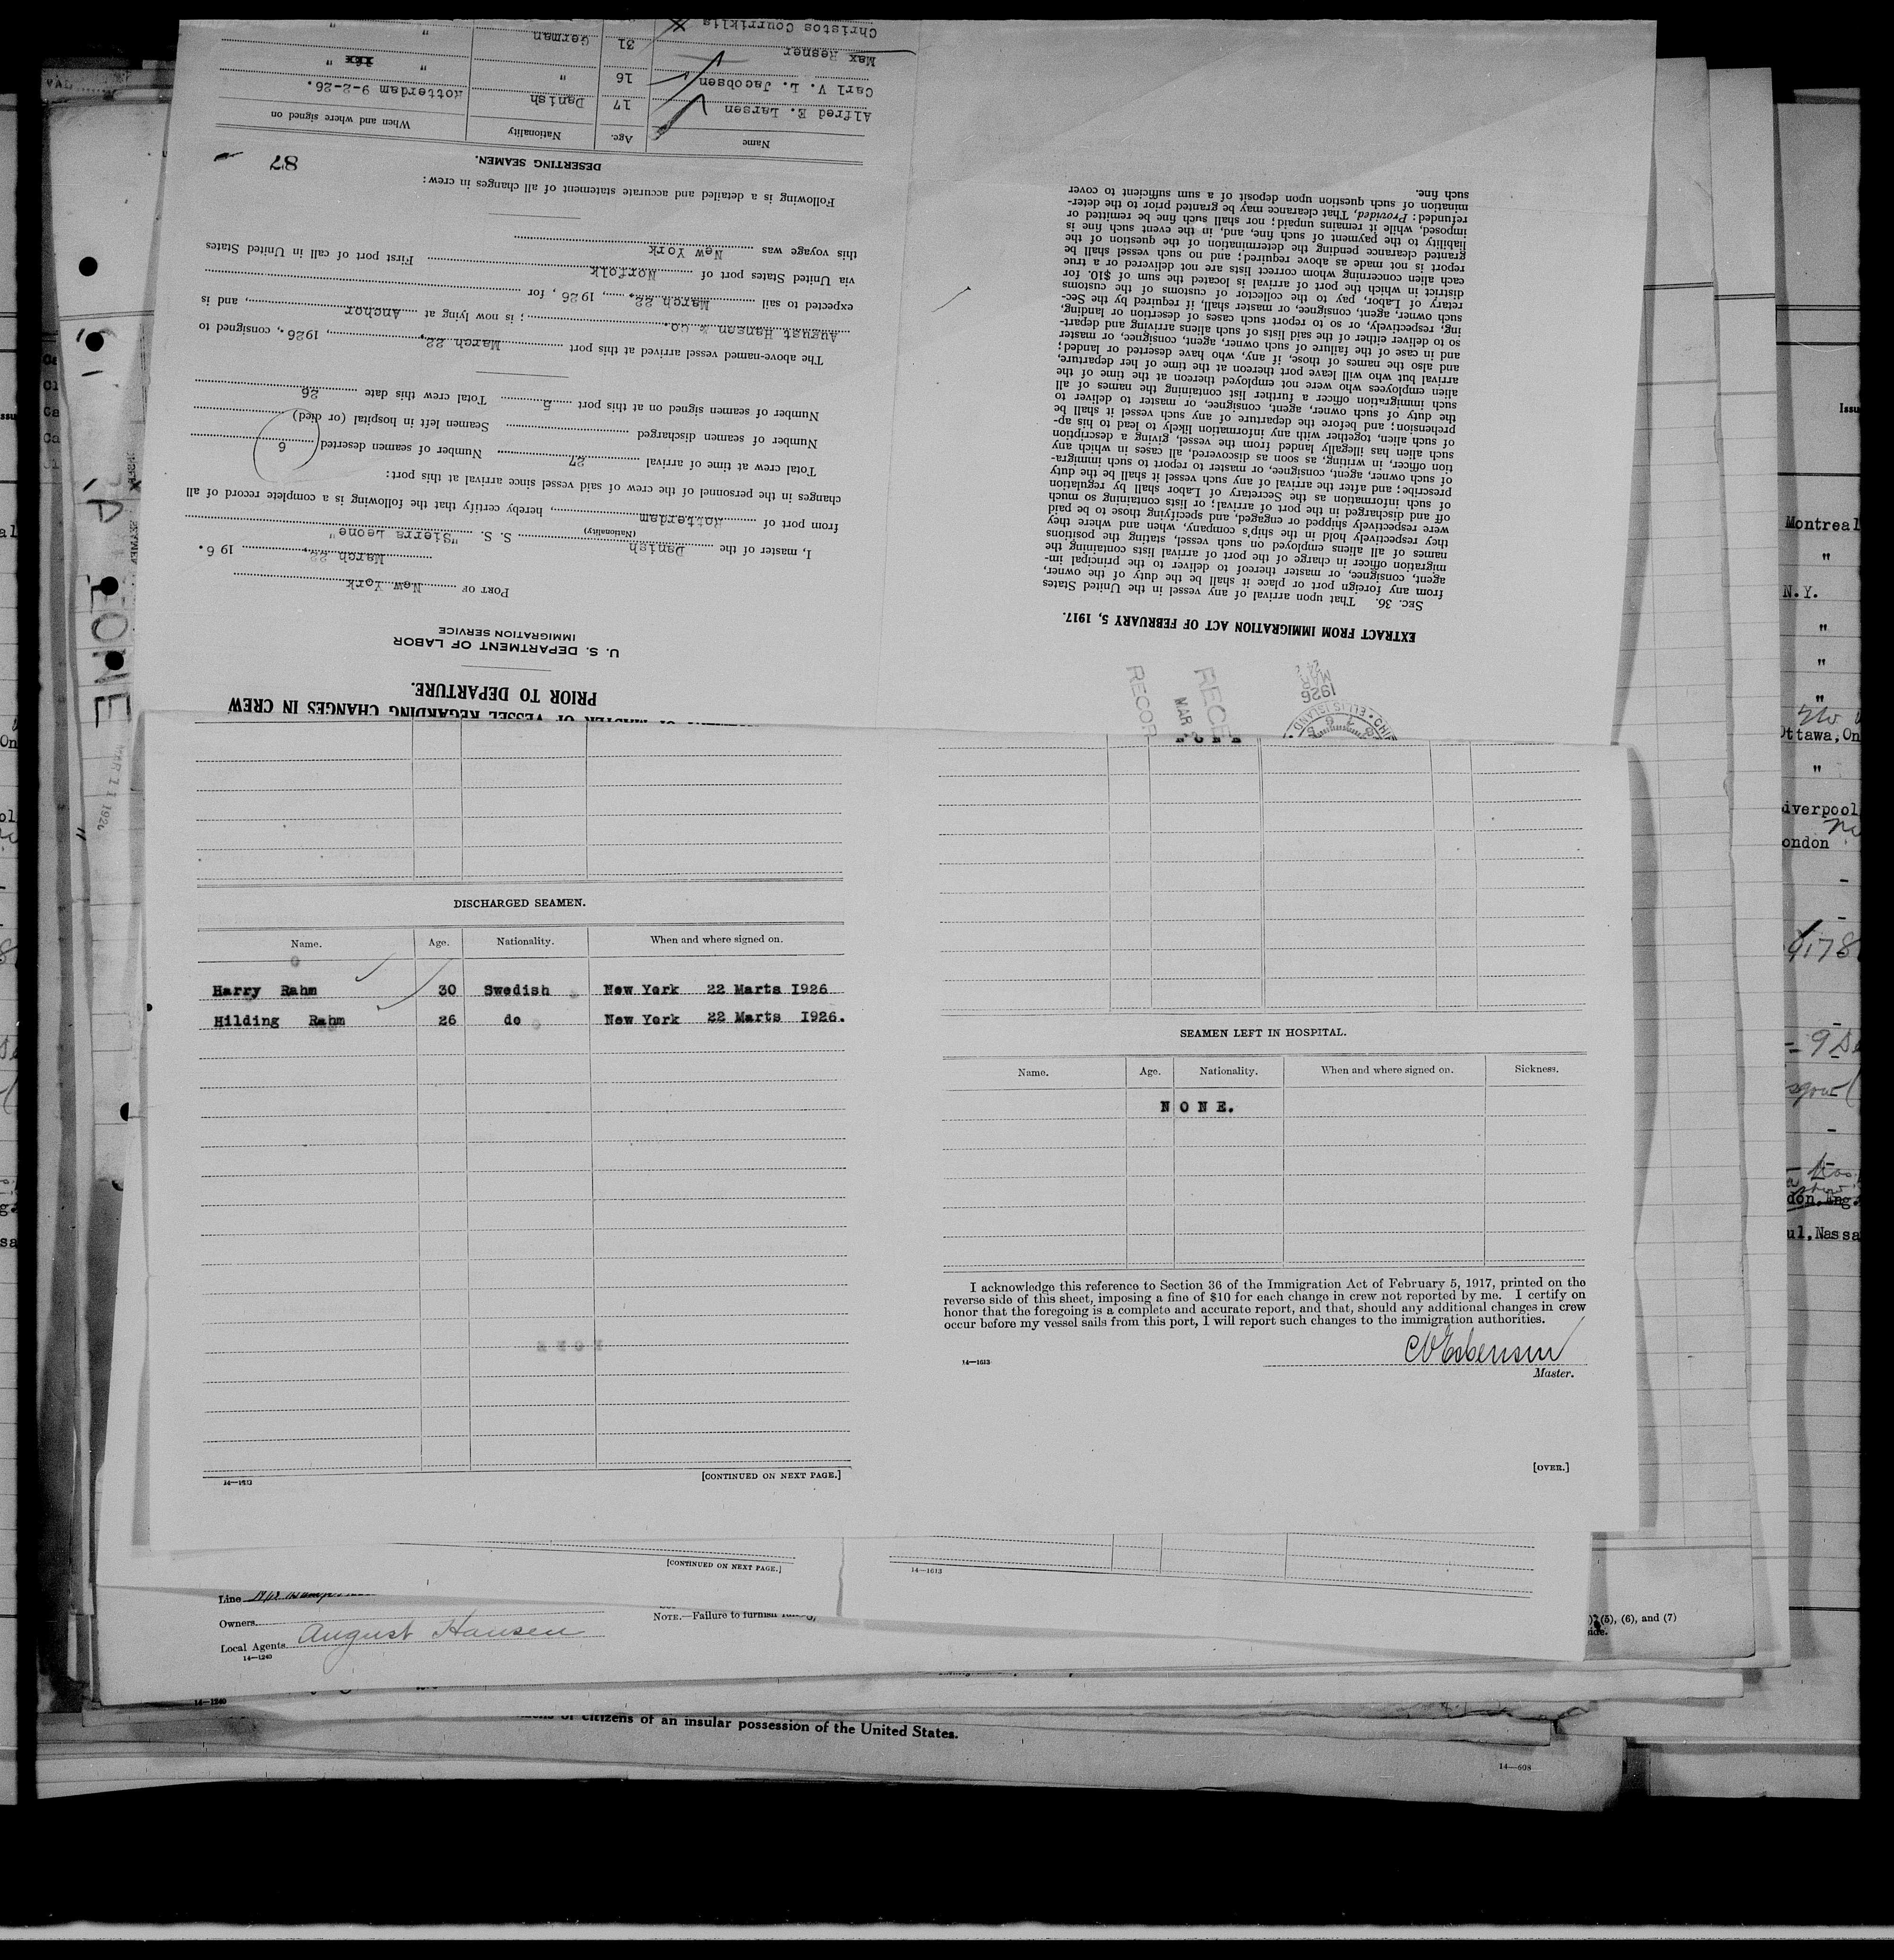 DISCHARGED SEAMEN.
Name. Age. Nationality. When and where signed on.
Harry Rahm 30 Swedish New York 22 Marts 1926
Hilding Rahm 26 do New York 22 Marts 1926.
14—1613 [CONTINUED ON NEXT PAGE.]
SEAMEN LEFT IN HOSPITAL.
Name. Age. Nationality. When and where signed on. Sickness.
N O N E.
I acknowledge this reference to Section 36 of the Immigration Act of February 5, 1917, printed on the
reverse side of this sheet, imposing a fine of $10 for each change in crew not reported by me. I certify on
honor that the foregoing is a complete and accurate report, and that, should any additional changes in crew
occur before my vessel sails from this port, I will report such changes to the immigration authorities.
14—1613
C V Esbensen
Master.
[OVER.]
PRIOR TO DEPARTURE.
U. S. DEPARTMENT OF LABOR
IMMIGRATION SERVICE
PORT OF New York
March 22, 19 6.
I, master of the Danish S. S. "Sierra Leone"
(Nationality)
from port of Rotterdam, hereby certify that the following is a complete record of all
changes in the personnel of the crew of said vessel since arrival at this port:
Total crew at time of arrival 27 Number of seamen deserted 6
Number of seamen discharged Seamen left in hospital (or died)
Number of seamen signed on at this port 5 Total crew this date 26
The above-named vessel arrived at this port March 22, 1926., consigned to
August Hansen & Co. ; is now lying at Anchor, and is
expected to sail March 22, 1926, for
via United States port of Norfolk First port of call in United States
this voyage was New York
Following is a detailed and accurate statement of all changes in crew:
DESERTING SEAMEN. 87
Name Age. Nationality When and where signed on
Alfred E. Larsen 17 Danish Rotterdam 9-2-26.
Carl V. L. Jacobsen 16 " " "
Max Regner 31 German " "
Christos Courriklis
1926
MAR
24
ELLIS ISLAND
RECE
MAR
RECOR
EXTRACT FROM IMMIGRATION ACT OF FEBRUARY 5, 1917.
SEC. 36. That upon arrival of any vessel in the United States
from any foreign port or place it shall be the duty of the owner,
agent, consignee, or master thereof to deliver to the principal im-
migration officer in charge of the port of arrival lists containing the
names of all aliens employed on such vessel, stating the positions
they respectively hold in the ship's company, when and where they
were respectively shipped or engaged, and specifying those to be paid
off and discharged in the port of arrival; or lists containing so much
of such information as the Secretary of Labor shall by regulation
prescribe; and after the arrival of any such vessel it shall be the duty
of such owner, agent, consignee, or master to report to such immigra-
tion officer, in writing, as soon as discovered, all cases in which any
such alien has illegally landed from the vessel, giving a description
of such alien, together with any information likely to lead to his ap-
prehension; and before the departure of any such vessel it shall be
the duty of such owner, agent, consignee, or master to deliver to
such immigration officer a further list containing the names of all
alien employees who were not employed thereon at the time of the
arrival but who will leave port thereon at the time of her departure,
and also the names of those, if any, who have deserted or landed;
and in case of the failure of such owner, agent, consignee, or master
so to deliver either of the said lists of such aliens arriving and depart-
ing, respectively, or so to report such cases of desertion or landing,
such owner, agent, consignee, or master shall, if required by the Sec-
retary of Labor, pay to the collector of customs of the customs
district in which the port of arrival is located the sum of $10. for
each alien concerning whom correct lists are not delivered or a true
report is not made as above required; and no such vessel shall be
granted clearance pending the determination of the question of the
liability to the payment of such fine, and, in the event such fine is
imposed, while it remains unpaid; nor shall such fine be remitted or
refunded: Provided, That clearance may be granted prior to the deter-
mination of such question upon deposit of a sum sufficient to cover
such fine.
[CONTINUED ON NEXT PAGE.]
14—1613
Line
Owners
Local Agents August Hansen
14—1240
NOTE.—Failure to furnish
(5), (6), and (7)
14—1240
citizens of an insular possession of the United States.
14—608
MAR 11 1926
Montreal
"
N.Y.
"
"
"
Ottawa, On
"
iverpool
ondon
9178
don, Eng.
ul, Nassa